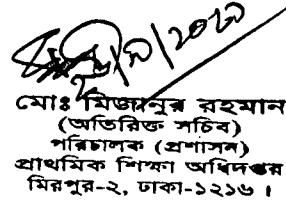 মোঃ মিজানুর রহমান
(অতিরিক্ত সচিব)
পরিচালক (প্রশাসন)
প্রাথমিক শিক্ষা অধিদপ্তর
মিরপুর-২, ঢাকা-১২১৬ ।